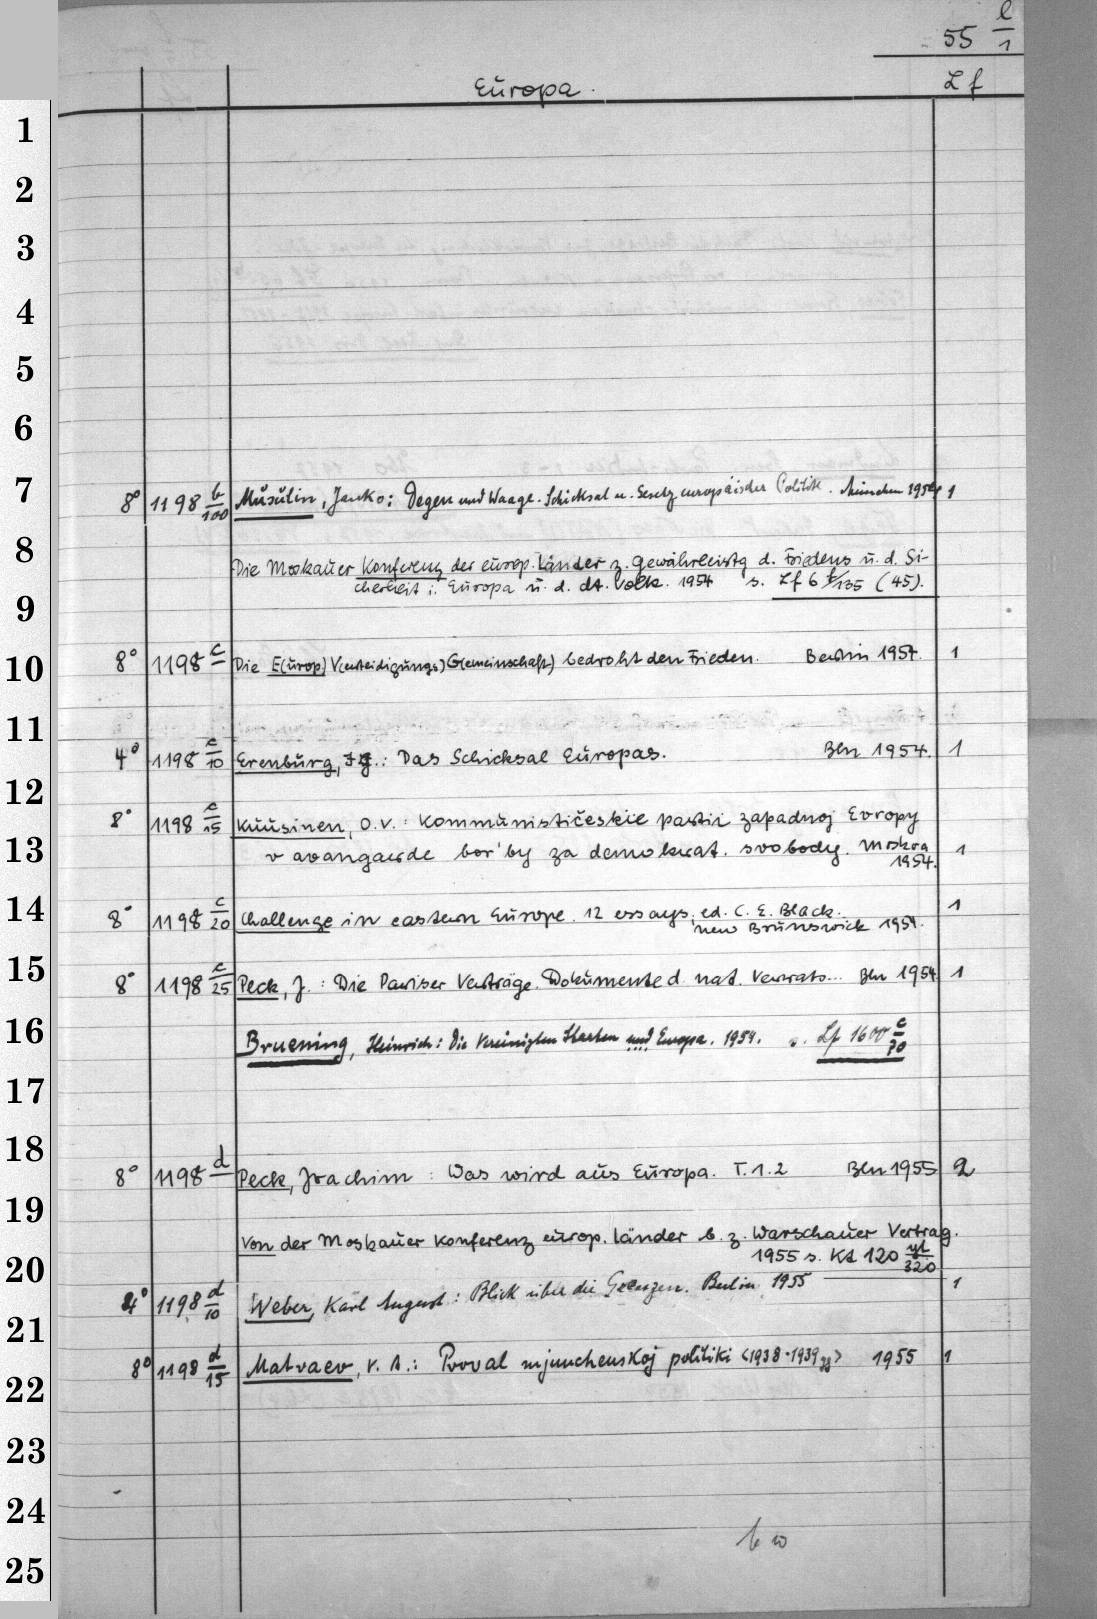 55 l/1
Europa. Lf
1
2
3
4
5
6
7
8° 1198 b/100 Musulin, Janko: Degen und Waage. Schicksal u. Gesetz europäischer Politik. München 1954 1
8
Die Moskauer Konferenz der europ. Länder z. Gewährleistg d. Friedens u. d. Si-
cherheit i. Europa u. d. dt. Volk. 1954 s. Lf 6 /135 (45).
9
10
8° 1198 c Die E(urop) V(erteidigungs) G(emeinschaft) bedroht den Frieden. Berlin 1954. 1
11
4° 1198 c/10 Erenburg, : Das Schicksal Europas. Bln 1954. 1
12
8° 1198 c/15 Kuusinen, O.V.: Kommunističeskie partii zapadnoj Evropy
13
v avangarde bor'by za demokrat. svobody. Moskva 1954. 1
14
8° 1198 c/20 Challenge in eastern Europe. 12 essays, ed. C. E. Black. New Brunswick 1954. 1
15
8° 1198 c/25 Peck, J.: Die Pariser Verträge. Dokumente d. nat. Verrats... Bln 1954 1
16
Bruening, Heinrich: Die Vereinigten Staaten und Europa. 1954. s. Lf 1600 c/70
17
18
8° 1198 d Peck, Joachim: Was wird aus Europa. T. 1.2 Bln 1955 2
19
Von der Moskauer Konferenz europ. Länder b. z. Warschauer Vertrag.
1955 s. Kt 120 /320
20
4° 1198 d/10 Weber, Karl August: Blick über die Grenzen. Berlin 1955 1
21
8° 1198 d/15 Matvaev, V. A.: Proval mjunchenskoj politiki <1938-1939 gg> 1955 1
22
23
24
25